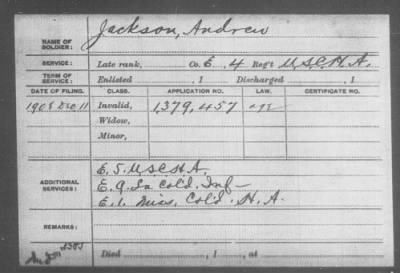 NAME OF SOLDIER: Jackson, Andrew
SERVICE: Late rank, Co. E, 4 Reg't U.S.C.H.A.
TERM OF SERVICE: Enlisted , 1 Discharged , 1
DATE OF FILING. CLASS. APPLICATION NO. LAW. CERTIFICATE NO.
1908 Dec 11 Invalid, 1,379,457
Widow,
Minor,
ADDITIONAL SERVICES: E. 5. U.S.C.H.A.
E. 9. La Col'd. Inf-
E. 1. Miss. Col'd. H.A.
REMARKS:
Died , 1 , at